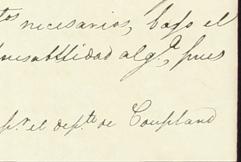 tos necesarios, bajo el
nesabilidad alga, pues
pr. el depto de Coupland